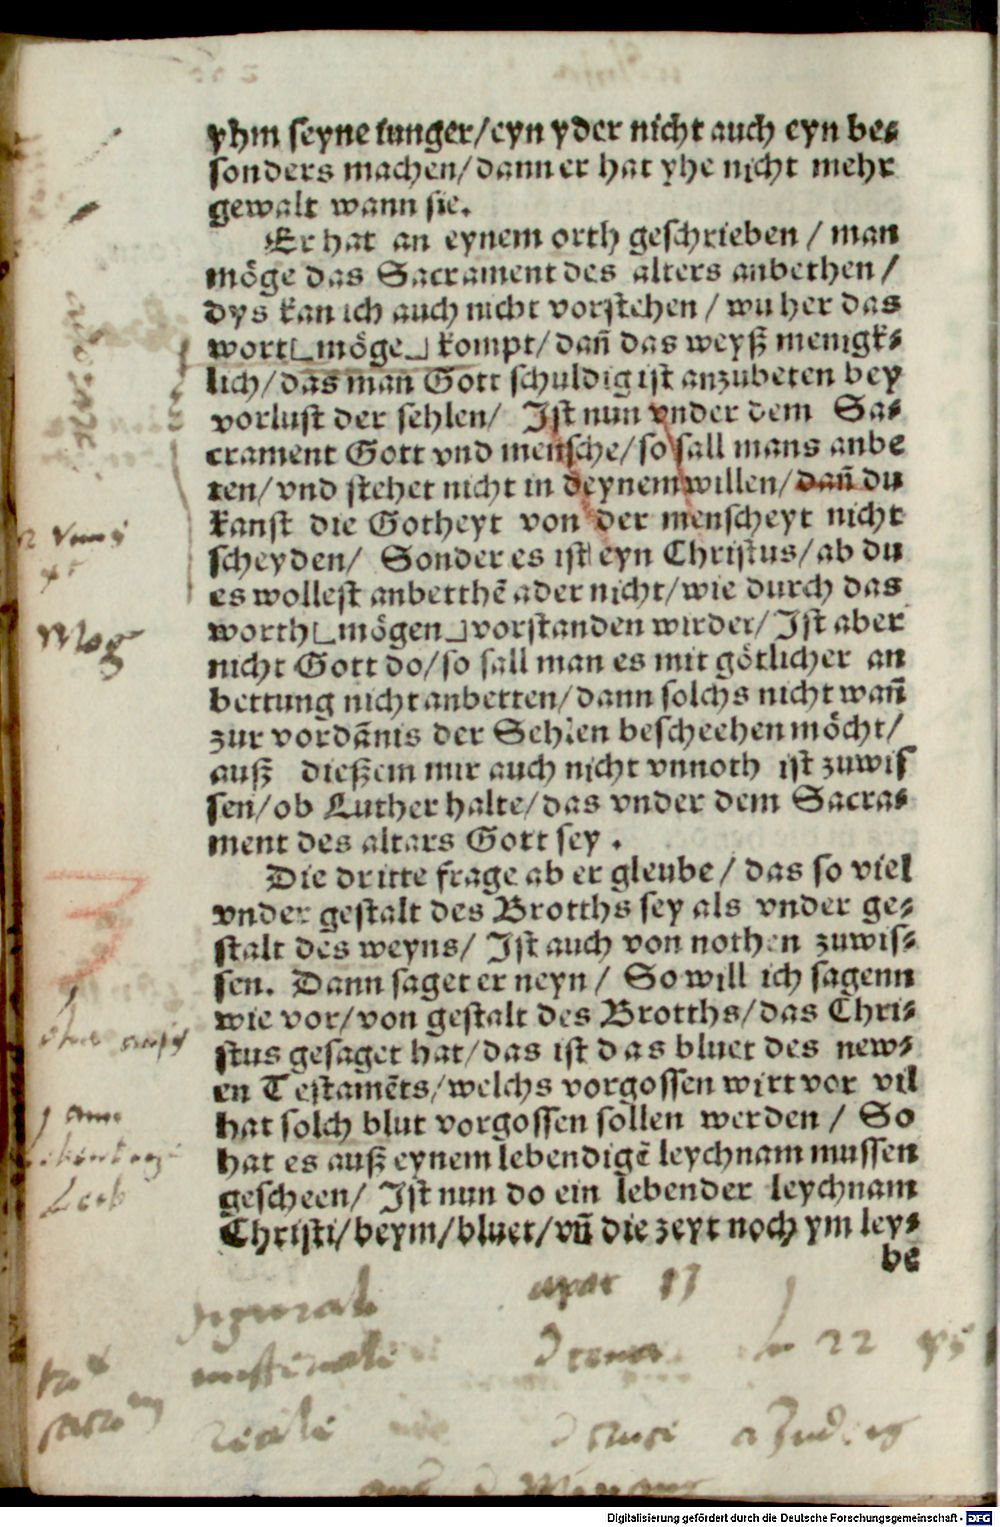 yhm seyne iunger/eyn yder nicht auch eyn be⸗
sonders machen/dann er hat yhe nicht mehr
gewalt wann sie.
Er hat an eynem orth geschrieben / man
möge das Sacrament des alters anbethen /
dys kan ich auch nicht vorstehen / wu her das
wort⌊möge⌋ kompt/ dañ das weyß menigk⸗
lich/ das man Gott schuldig ist anzubeten bey
vorlust der sehlen/ Ist nun vnder dem Sa⸗
crament Gott vnd mensche/so sall mans anbe
ten/ vnd stehet nicht in deynem willen/ dañ du
kanst die Gotheyt von der menscheyt nicht
scheyden/ Sonder es ist eyn Christus/ ab du
es wollest anbetthẽ ader nicht/ wie durch das
worth⌊mögen⌋vorstanden wirdet/ Ist aber
nicht Gott do/ so sall man es mit götlicher an
bettung nicht anbetten/ dann solchs nicht wañ
zur vordãnis der Sehlen bescheehen möcht/
auß dießem mir auch nicht vnnoth ist zuwis
sen/ob Luther halte/das vnder dem Sacra⸗
ment des altars Gott sey .
Die dritte frage ab er gleube / das so viel
vnder gestalt des Brotths sey als vnder ge⸗
stalt des weyns/ Ist auch von nothen zuwis⸗
sen. Dann saget er neyn / So will ich sagenn
wie vor/ von gestalt des Brotths/ das Chri⸗
stus gesaget hat/ das ist das bluet des new⸗
en Testamẽts/ welchs vorgossen wirt vor vil
hat solch blut vorgossen sollen werden / So
hat es auß eynem lebendigẽ leychnam mussen
gescheen/ Ist nun do ein lebender leychnam
Christi/ beym/ bluet/ vñ die zeyt noch ym ley⸗
be
Mog
3
Leeb
22
Digitalisierung gefördert durch die Deutsche Forschungsgemeinschaft - DFG